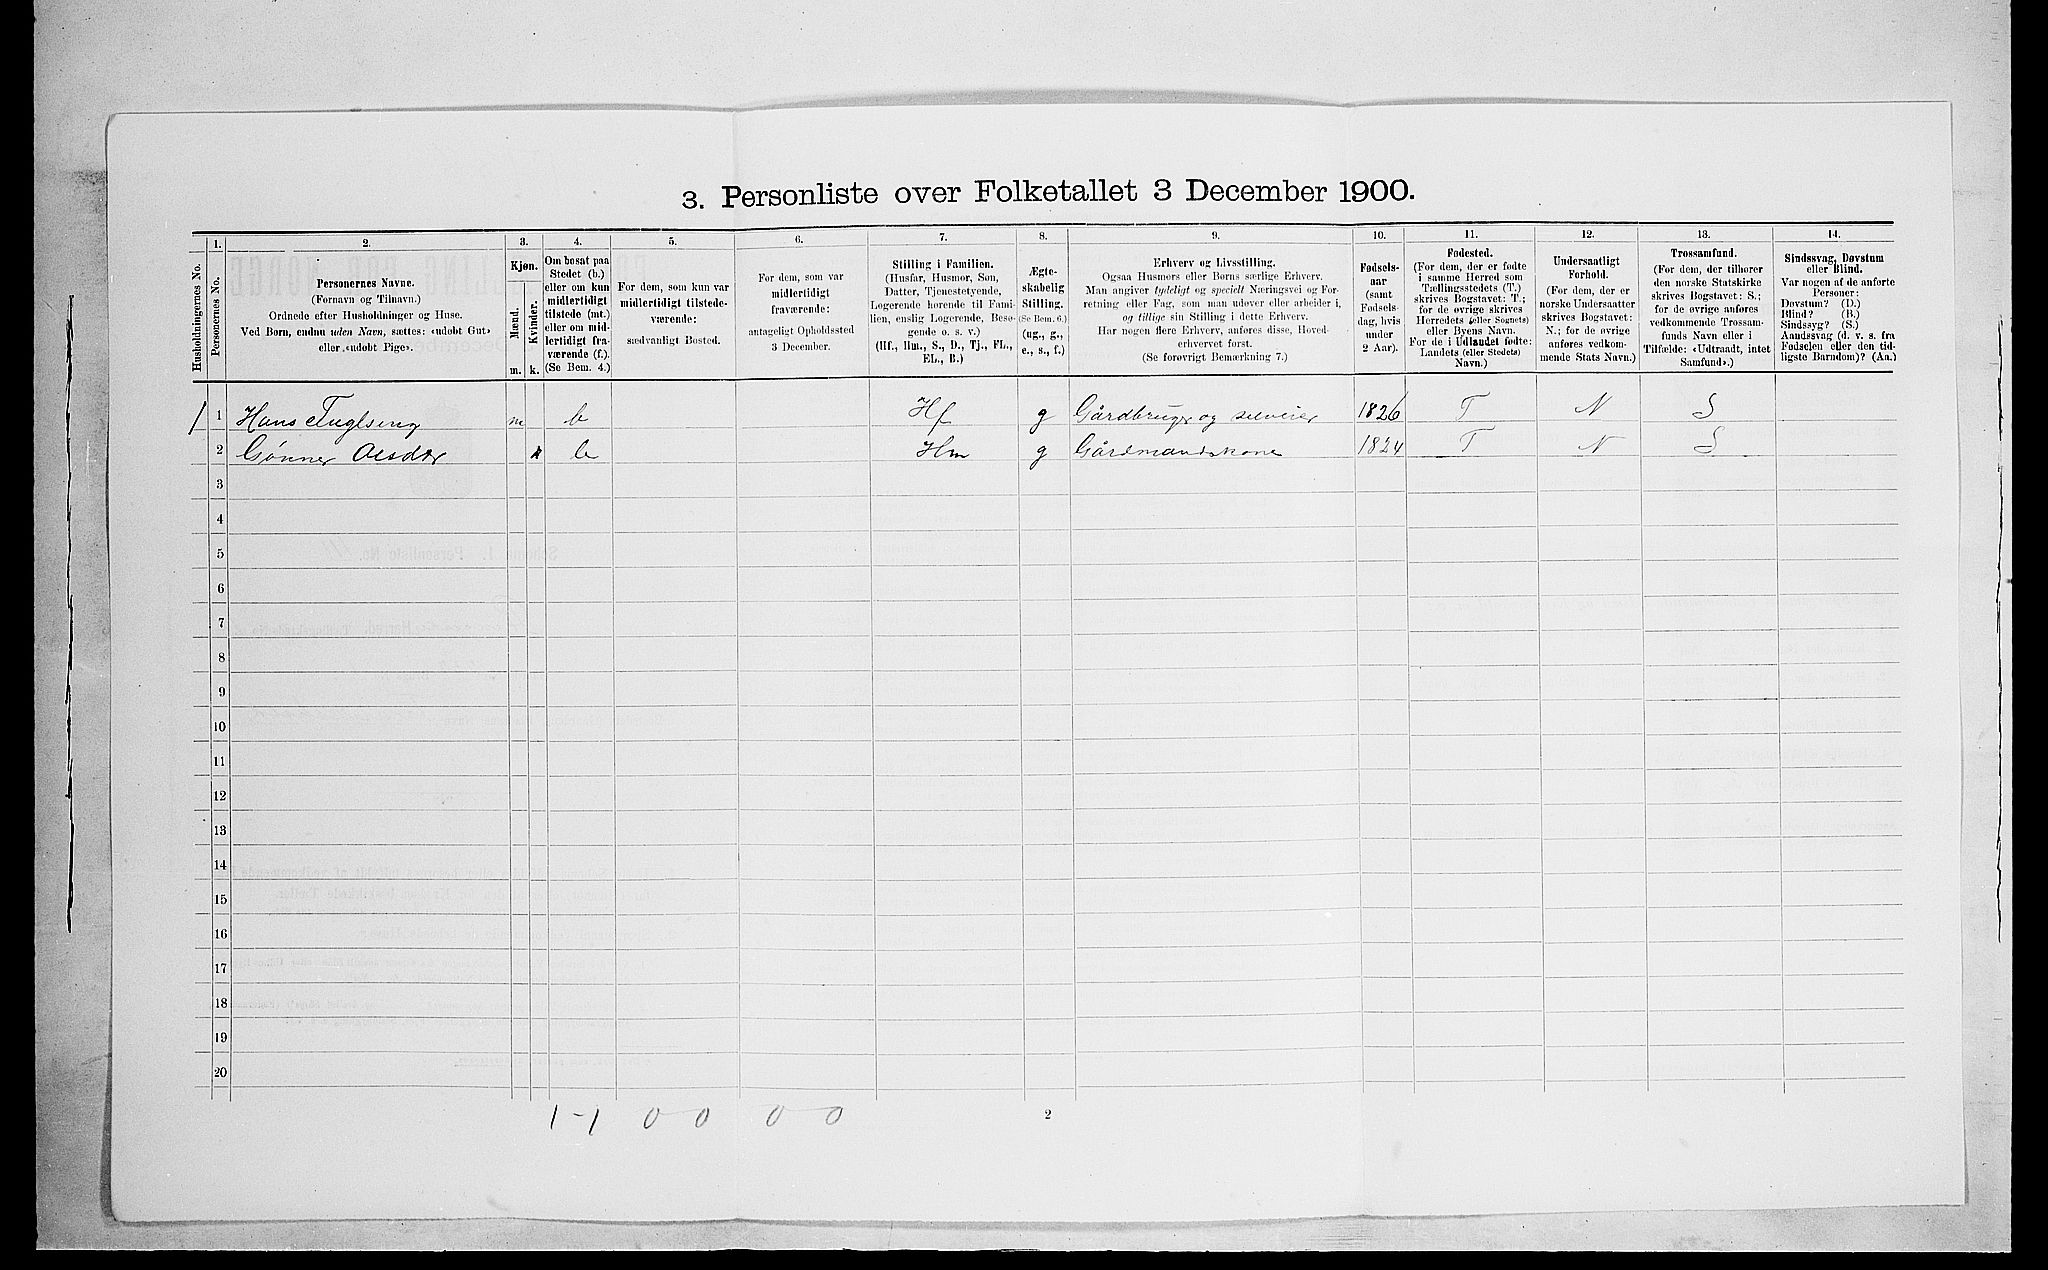 3. Personliste over Folketallet 3 December 1900.
Husholdningernes No.
1.
Personernes No.
2.
Personernes Navne.
(Fornavn og Tilnavn.)
Ordnede efter Husholdninger og Huse.
Ved Børn, endnu uden Navn, sættes: «udøbt Gut»
eller «udøbt Pige».
3.
Kjøn.
Mænd.
m.
Kvinder.
k.
4.
Om bosat paa
Stedet (b.)
eller om kun
midlertidigt
tilstede (mt.)
eller om mid-
lertidigt fra-
værende (f.).
(Se Bem. 4.)
5.
For dem, som kun var
midlertidigt tilstede-
værende:
sædvanligt Bosted.
6.
For dem, som var
midlertidigt
fraværende:
antageligt Opholdssted
3 December.
7.
Stilling i Familien.
(Husfar, Husmor, Søn,
Datter, Tjenestetyende,
Logerende hørende til Fami-
lien, enslig Logerende, Besø-
gende o. s. v.)
(Hf., Hm., S., D., Tj., FL.,
EL., B.)
8.
Ægte-
skabelig
Stilling.
(Se Bem. 6.)
(ug., g.,
e., s., f.)
9.
Erhverv og Livsstilling.
Ogsaa Husmors eller Børns særlige Erhverv.
Man angiver tydeligt og specielt Næringsvei og For-
retning eller Fag, som man udøver eller arbeider i,
og tillige sin Stilling i dette Erhverv.
Har nogen flere Erhverv, anføres disse, Hoved-
erhvervet først.
(Se forøvrigt Bemærkning 7.)
10.
Fødsels-
aar
(samt
Fødsels-
dag, hvis
under
2 Aar).
11.
Fødested.
(For dem, der er fødte
i samme Herred som
Tællingsstedets (T.)
skrives Bogstavet: T.;
for de øvrige skrives
Herredets (eller Sognets)
eller Byens Navn.
For de i Udlandet fødte:
Landets (eller Stedets)
Navn.)
12.
Undersaatligt
Forhold.
(For dem, der er
norske Undersaatter
skrives Bogstavet:
N.; for de øvrige
anføres vedkom-
mende Stats Navn.)
13.
Trossamfund.
(For dem, der tilhører
den norske Statskirke
skrives Bogstavet: S.;
for de øvrige anføres
vedkommende Trossam-
funds Navn eller i
Tilfælde: «Udtraadt, intet
Samfund».)
14.
Sindssvag, Døvstum
eller Blind.
Var nogen af de anførte
Personer:
Døvstum? (D.)
Blind? (B.)
Sindssyg? (S.)
Aandssvag (d. v. s. fra
Fødselen eller den tid-
ligste Barndom)? (Aa.)
1 1 Hans m b Hf g Gårdbruger og selveier 1826 T N S
2 Gønner k b Hm g Gårdmandskone 1824 T N S
3
4
5
6
7
8
9
10
11
12
13
14
15
16
17
18
19
20
1-1 0 0 0 0
2